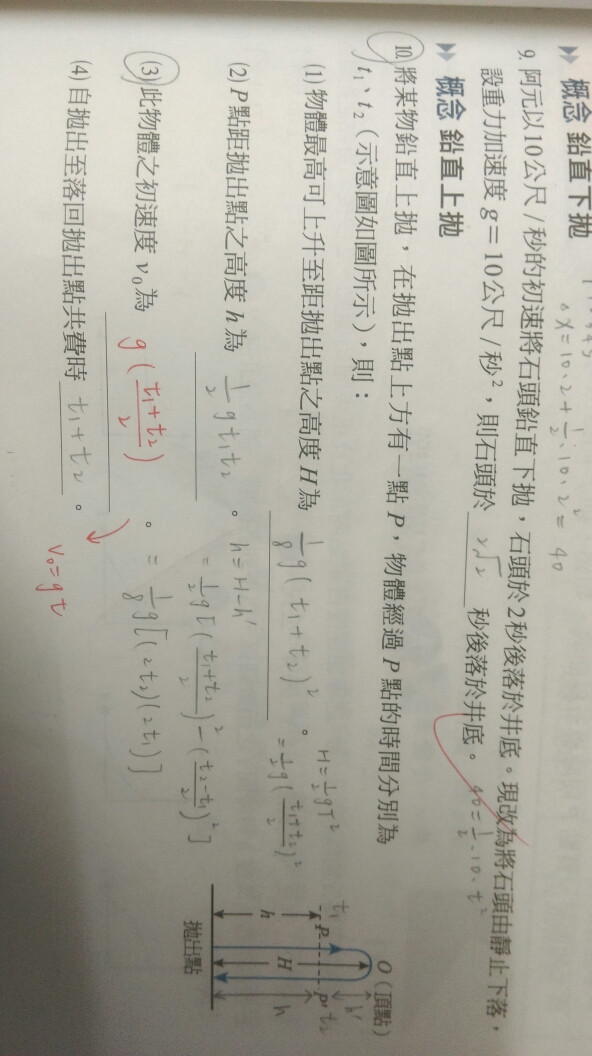 ▶▶ 概念 鉛直下拋
△X = 10·2 + 1/2·10·2² = 40
9. 阿元以10公尺/秒的初速將石頭鉛直下拋，石頭於2秒後落於井底。現改為將石頭由靜止下落，
設重力加速度 g＝10公尺/秒²，則石頭於 2√2 秒後落於井底。 40 = 1/2·10·t²
▶▶ 概念 鉛直上拋
10. 將某物鉛直上拋，在拋出點上方有一點 P，物體經過 P 點的時間分別為
t₁、t₂（示意圖如圖所示），則：
(1) 物體最高可上升至距拋出點之高度 H 為 1/8 g(t₁+t₂)² 。
H = 1/2 gT²
= 1/2 g((t₁+t₂)/2)²
(2) P 點距拋出點之高度 h 為 1/2 g t₁t₂ 。 h = H - h'
= 1/2 g[((t₁+t₂)/2)² - ((t₂-t₁)/2)²]
(3) 此物體之初速度 v₀ 為 g((t₁+t₂)/2) 。 = 1/8 g[(2t₂)(2t₁)]
(4) 自拋出至落回拋出點共費時 t₁+t₂ 。
V₀ = gt
O（頂點）
t₁ P P' t₂ h'
h H h
拋出點